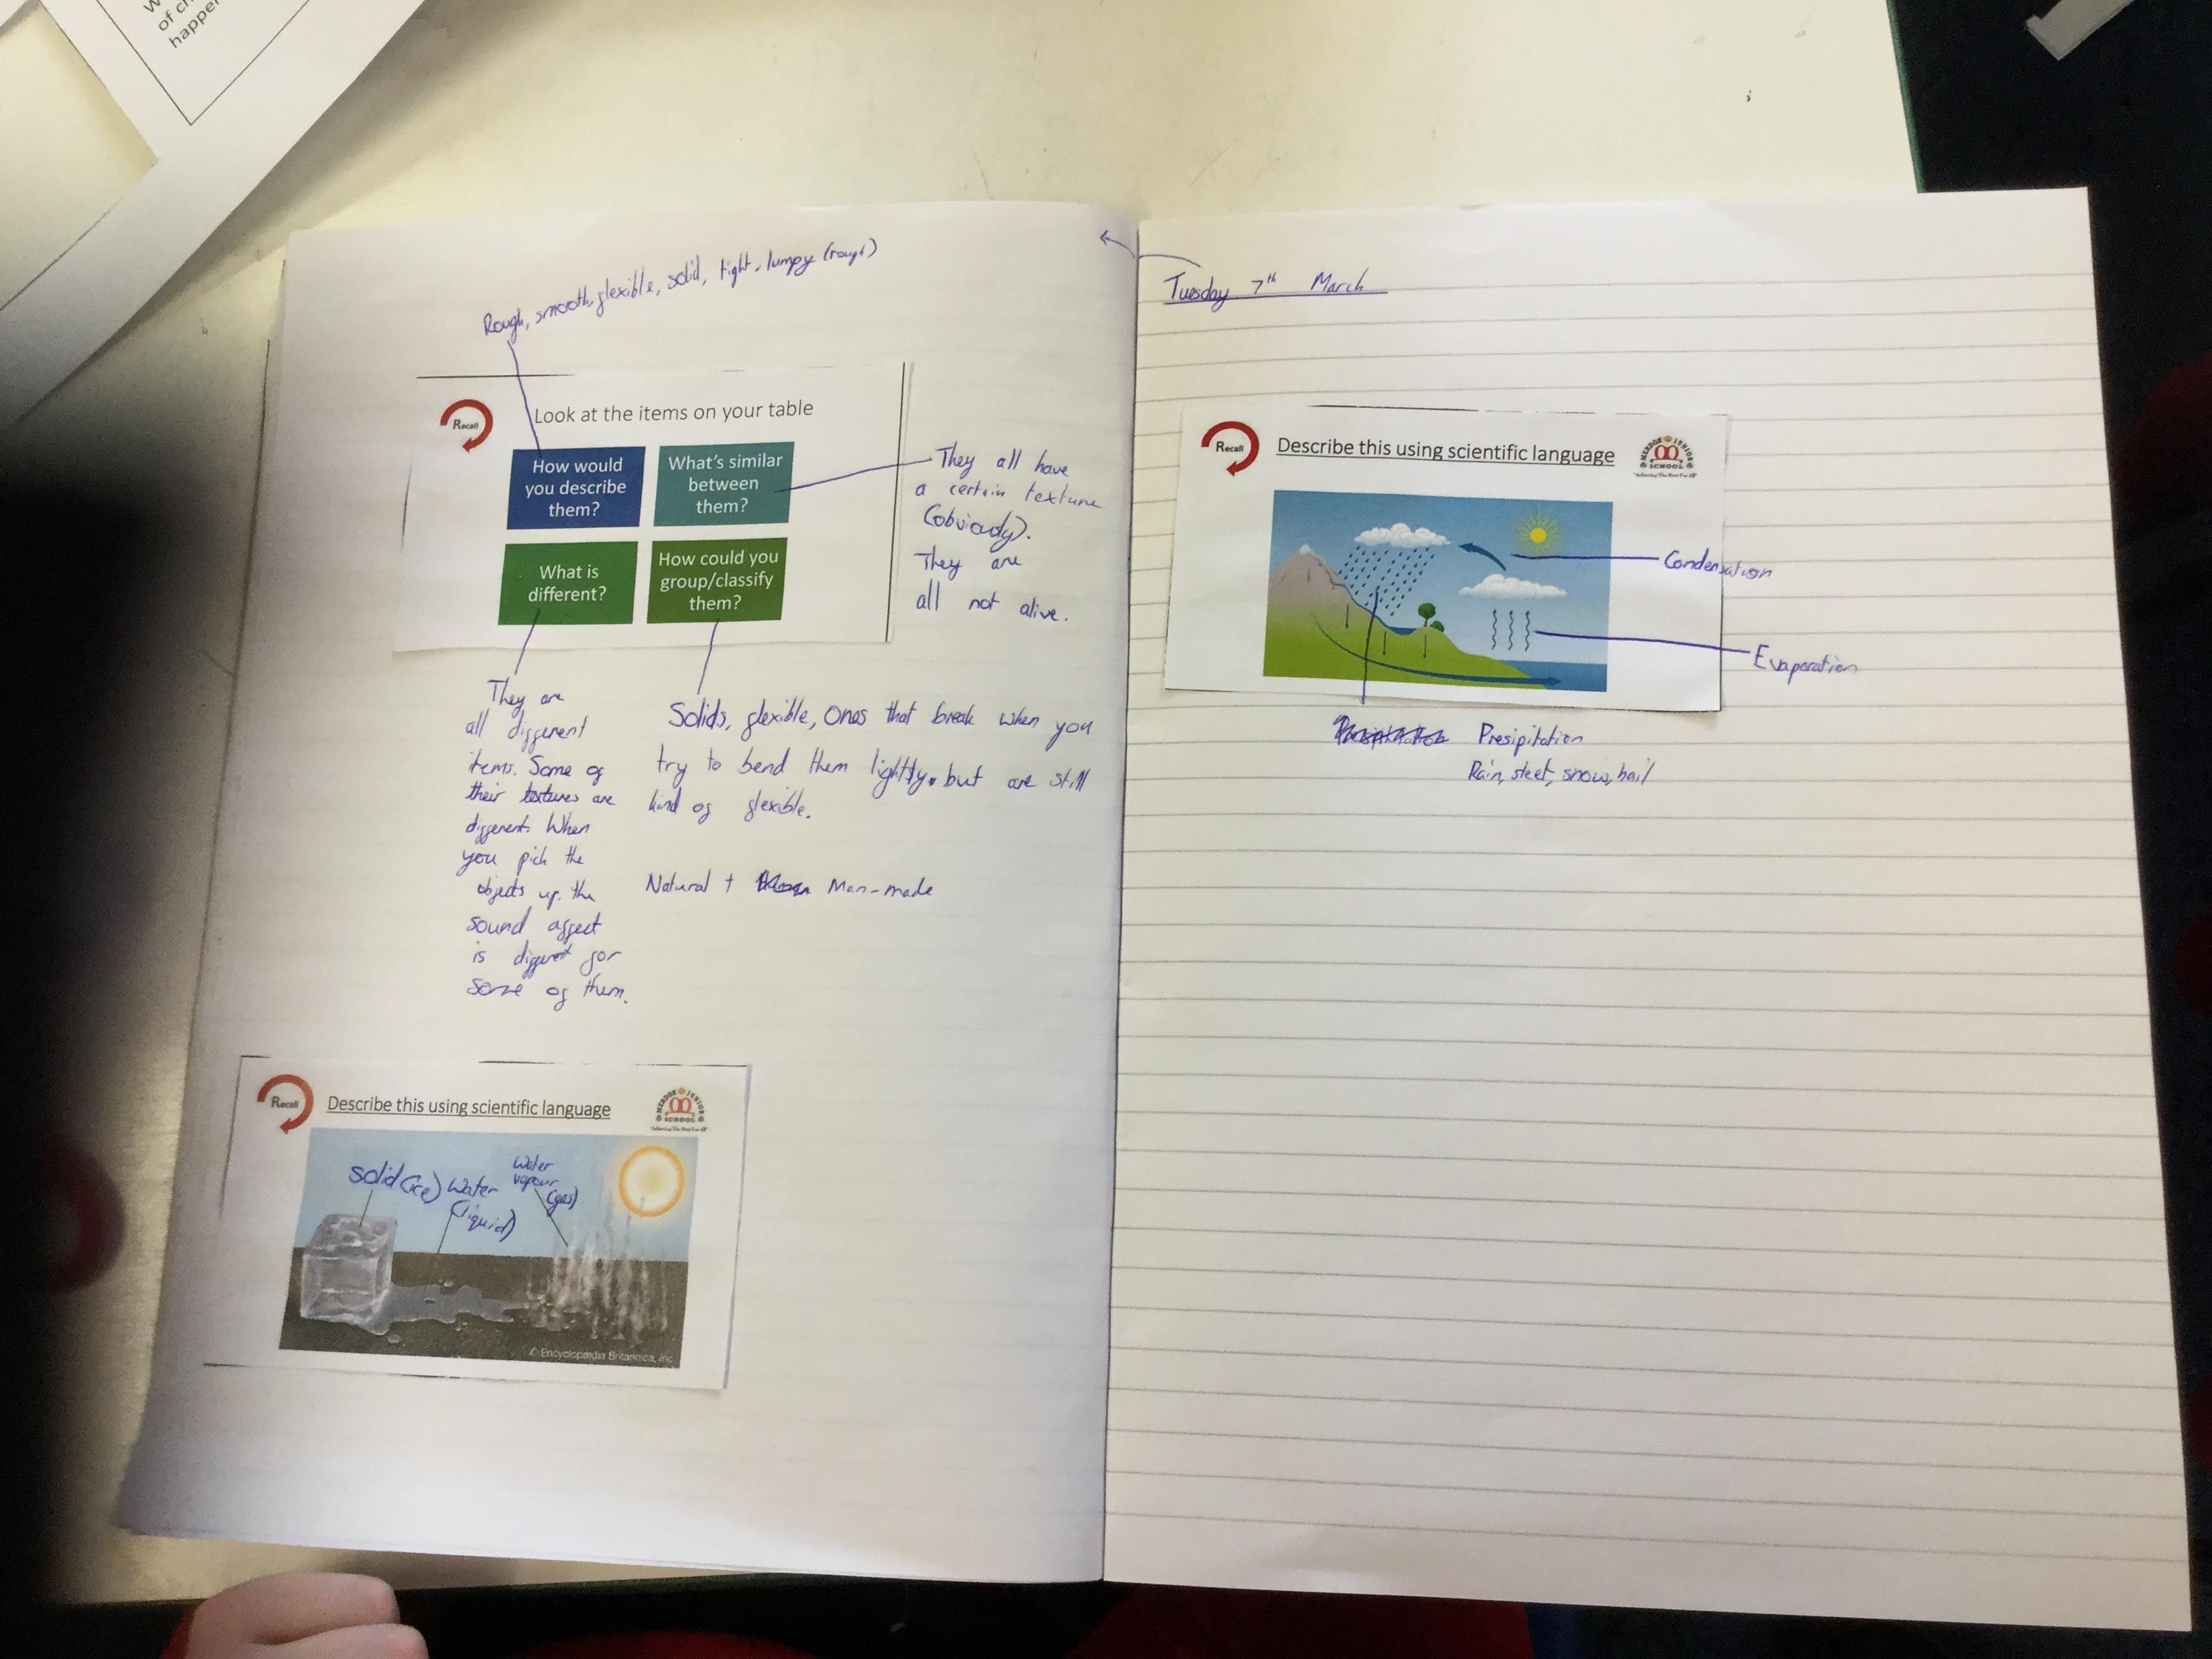 of ch
happe
Rough, smooth, flexible, solid, tight, lumpy (rough)
Recall
Look at the items on your table
How would
you describe
them?
What's similar
between
them?
What is
different?
How could you
group/classify
them?
They all have
a certain texture
(obviously).
They are
all not alive.
They are
all different
items. Some of
their textures are
different. When
you pick the
objects up, the
sound affect
is different for
some of them.
Solids, flexible, Ones that break when you
try to bend them lightly. but are still
kind of flexible.
Natural + Man-made
Recall
Describe this using scientific language
MERDON JUNIOR
SCHOOL
"Achieving The Best For All"
solid (ice)
Water
(liquid)
Water
vapour
(gas)
© Encyclopædia Britannica, Inc
Tuesday 7th March
Recall
Describe this using scientific language
MERDON JUNIOR
SCHOOL
"Achieving The Best For All"
Condensation
Evaporation
Presipitation
Rain, sleet, snow, hail